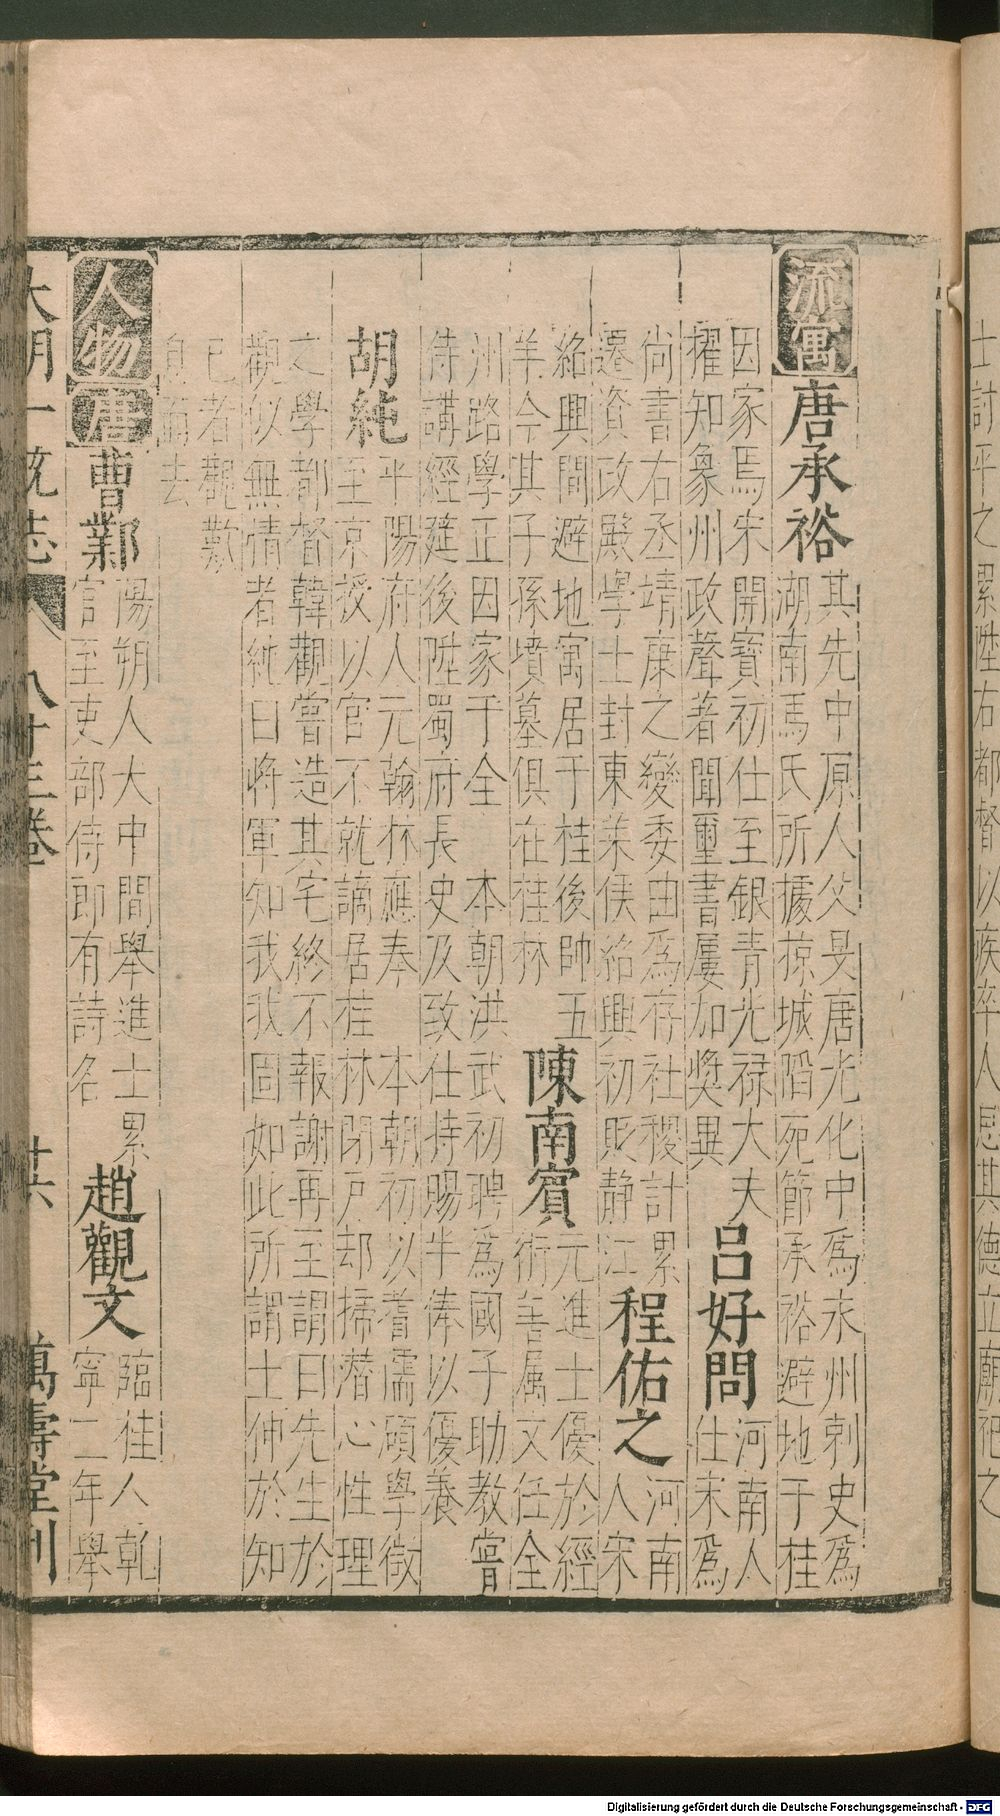 士討平之累陞右都督以疾卒人思其德立廟祀之
流寓 唐承裕 其先中原人父旻唐光化中為永州刺史為
湖南馬氏所據掠城陷死節承裕避地于桂
因家焉宋開寶初仕至銀青光祿大夫
擢知象州政聲著聞璽書屢加獎異
呂好問 河南人
仕宋為
尚書右丞靖康之變委曲為存社稷計累
遷資政殿學士封東萊侯紹興初貶靜江
程佑之 河南
人宋
紹興間避地寓居于桂後帥五
羊今其子孫墳墓俱在桂林
陳南賓 元進士優於經
術善属文任全
州路學正因家于全 本朝洪武初聘為國子助教嘗
侍講經筵後陞蜀府長史及致仕特賜半俸以優養
胡純 平陽府人元翰林應奉 本朝初以耆儒碩學徵
至京授以官不就謫居桂林閉戶却掃潛心性理
之學都督韓觀嘗造其宅終不報謝再至謂曰先生於
觀似無情者純曰將軍知我我固如此所謂士伸於知
己者觀歎
息而去
人物 唐 曹鄴 陽朔人大中間舉進士累
官至吏部侍郎有詩名
趙觀文 臨桂人乾
寧二年舉
大明一統志 八十三卷 廿六 萬壽堂刊
Digitalisierung gefördert durch die Deutsche Forschungsgemeinschaft - DFG